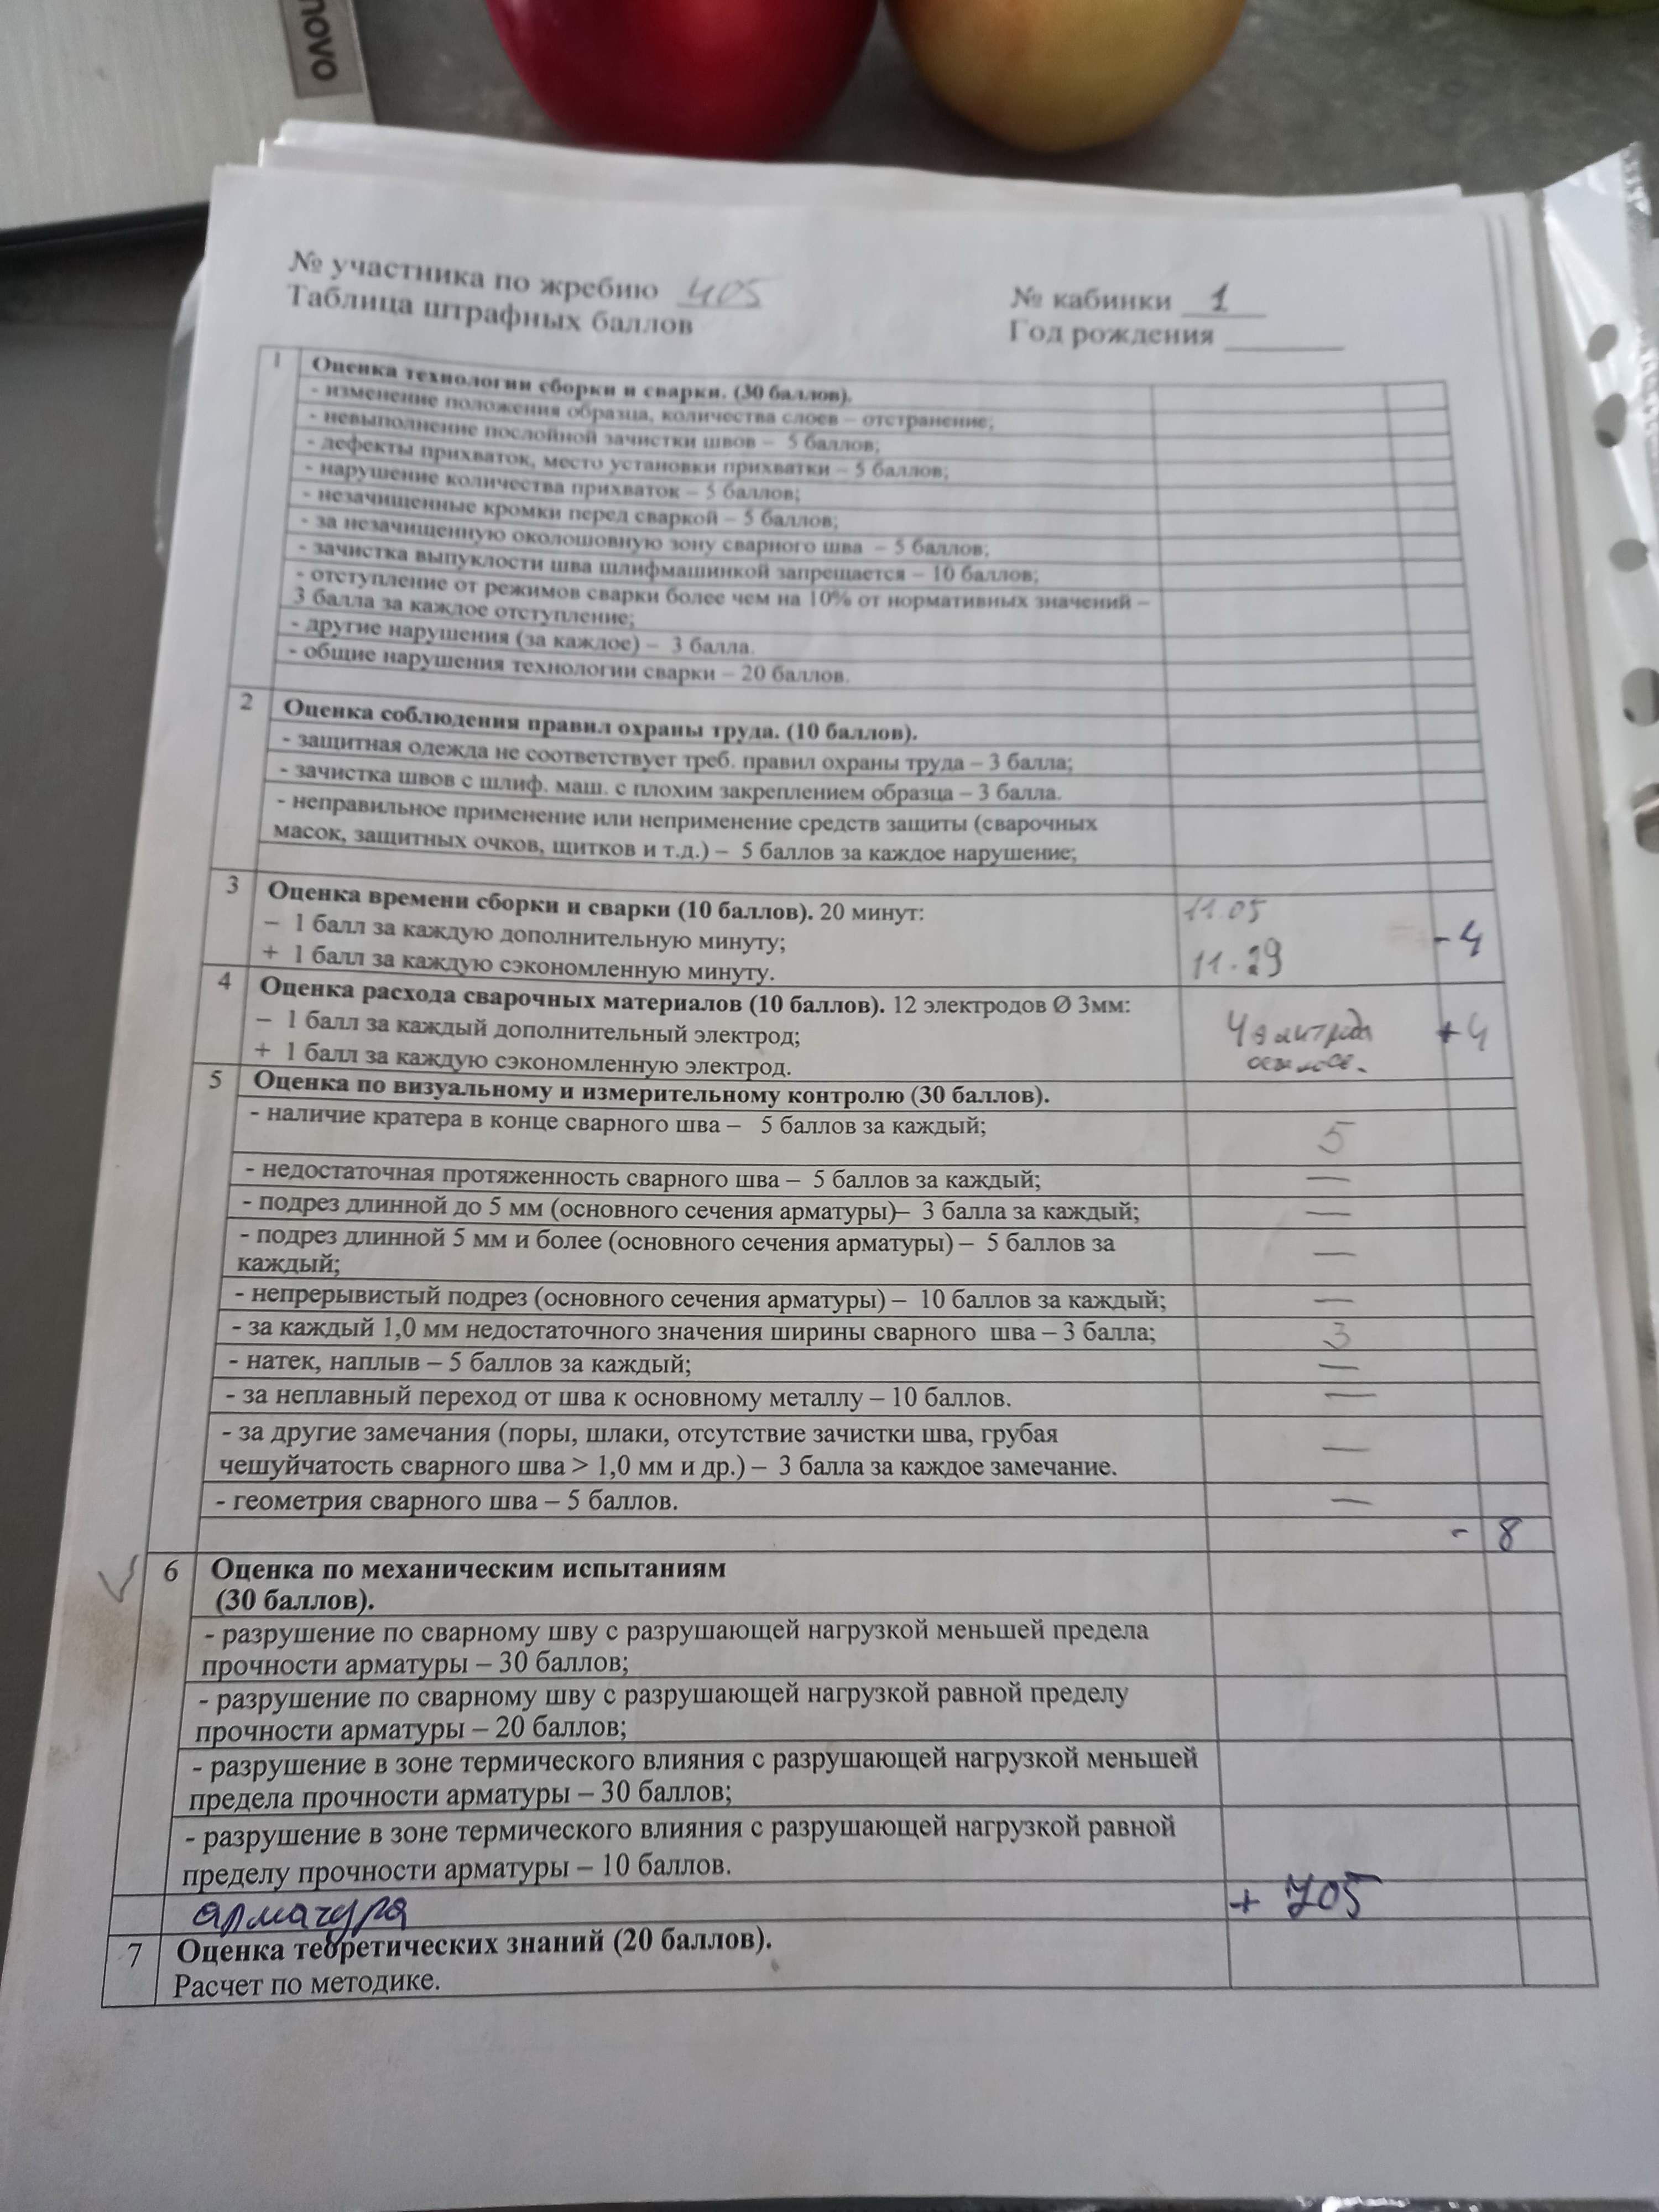 novo
№ участника по жребию 405
№ кабинки 1
Таблица штрафных баллов
Год рождения
1 Оценка технологии сборки и сварки. (30 баллов).
- изменение положения образца, количества слоев – отстранение;
- невыполнение послойной зачистки швов – 5 баллов;
- дефекты прихваток, место установки прихватки – 5 баллов;
- нарушение количества прихваток – 5 баллов;
- незачищенные кромки перед сваркой – 5 баллов;
- за незачищенную околошовную зону сварного шва – 5 баллов;
- зачистка выпуклости шва шлифмашинкой запрещается – 10 баллов;
- отступление от режимов сварки более чем на 10% от нормативных значений –
3 балла за каждое отступление;
- другие нарушения (за каждое) – 3 балла.
- общие нарушения технологии сварки – 20 баллов.
2 Оценка соблюдения правил охраны труда. (10 баллов).
- защитная одежда не соответствует треб. правил охраны труда – 3 балла;
- зачистка швов с шлиф. маш. с плохим закреплением образца – 3 балла.
- неправильное применение или неприменение средств защиты (сварочных
масок, защитных очков, щитков и т.д.) – 5 баллов за каждое нарушение;
3 Оценка времени сборки и сварки (10 баллов). 20 минут: 11.05
– 1 балл за каждую дополнительную минуту; - 4
+ 1 балл за каждую сэкономленную минуту. 11.29
4 Оценка расхода сварочных материалов (10 баллов). 12 электродов Ø 3мм:
– 1 балл за каждый дополнительный электрод; 4 +4
+ 1 балл за каждую сэкономленную электрод.
5 Оценка по визуальному и измерительному контролю (30 баллов).
- наличие кратера в конце сварного шва – 5 баллов за каждый; 5
- недостаточная протяженность сварного шва – 5 баллов за каждый; —
- подрез длинной до 5 мм (основного сечения арматуры)– 3 балла за каждый; —
- подрез длинной 5 мм и более (основного сечения арматуры) – 5 баллов за —
каждый;
- непрерывистый подрез (основного сечения арматуры) – 10 баллов за каждый; —
- за каждый 1,0 мм недостаточного значения ширины сварного шва – 3 балла; 3
- натек, наплыв – 5 баллов за каждый; —
- за неплавный переход от шва к основному металлу – 10 баллов. —
- за другие замечания (поры, шлаки, отсутствие зачистки шва, грубая —
чешуйчатость сварного шва > 1,0 мм и др.) – 3 балла за каждое замечание.
- геометрия сварного шва – 5 баллов. —
- 8
6 Оценка по механическим испытаниям
(30 баллов).
- разрушение по сварному шву с разрушающей нагрузкой меньшей предела
прочности арматуры – 30 баллов;
- разрушение по сварному шву с разрушающей нагрузкой равной пределу
прочности арматуры – 20 баллов;
- разрушение в зоне термического влияния с разрушающей нагрузкой меньшей
предела прочности арматуры – 30 баллов;
- разрушение в зоне термического влияния с разрушающей нагрузкой равной
пределу прочности арматуры – 10 баллов.
арматура + 705
7 Оценка теоретических знаний (20 баллов).
Расчет по методике.